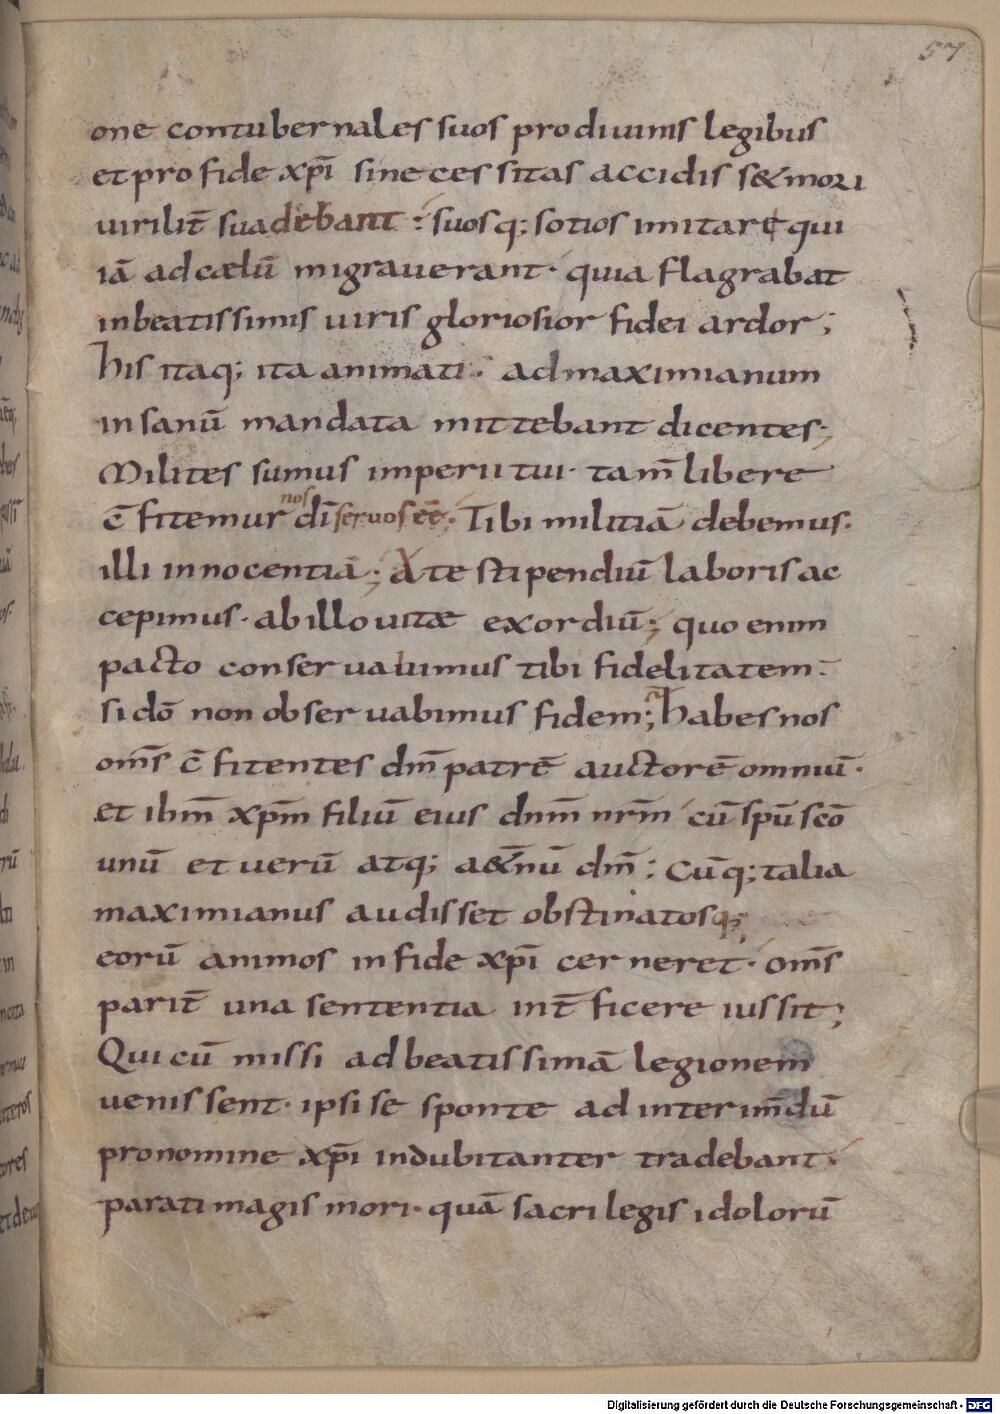 57
one contubernales suos prodiuinis legibus
et pro fide xp̄i sinecessitas accidisset mori
uirilit̄ suadebant : suosq; sotios imitarent̄ qui
iā ad cælū migrauerant · quia flagrabat
in beatissimis uiris gloriosior fidei ardor ;
his itaq; ita animati · ad maximianum
insanū mandata mittebant dicentes ;
Milites sumus imperii tui · tam̄ libere
c̄fitemur nos dī seruos eē · Tibi militiā debemus ·
illi innocentiā ; A te stipendiū laboris ac
cepimus · ab illo uitæ exordiū ; quo enim
pacto conseruabimus tibi fidelitatem :
si dō non obseruabimus fidem ; habes nos
om̄s c̄fitentes dm̄ patrē auctorē omniū ·
et ihm̄ xpm̄ filiū eius dnm̄ nrm̄ cū spū scō
unū et uerū atq; aet̄nū dm̄ : Cūq; talia
maximianus audisset obstinatosq;
eorū animos in fide xp̄i cerneret · om̄s
parit̄ una sententia int̄ficere iussit ;
Qui cū missi ad beatissimā legionem
uenissent · ipsi se sponte ad interimdū
pro nomine xp̄i indubitanter tradebant ·
parati magis mori · quā sacrilegis idolorū
Digitalisierung gefördert durch die Deutsche Forschungsgemeinschaft - DFG